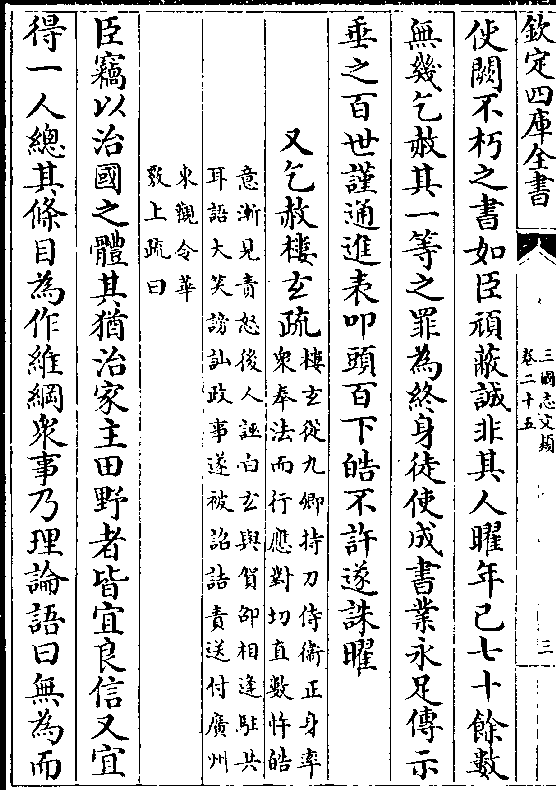 欽定四庫全書
三國志文類
卷二十五
三
使闕不朽之書如臣頑蔽誠非其人曜年已七十餘數
無幾乞赦其一等之罪為終身徒使成書業永足傳示
垂之百世謹通進表叩頭百下皓不許遂誅曜
又乞赦樓玄疏
樓玄從九卿持刀侍衛正身率
衆奉法而行應對切直數忤皓
意漸見責怒後人誣白玄與賀邵相逢駐共
耳語大笑謗訕政事遂被詔詰責送付廣州
東觀令華
覈上疏曰
臣竊以治國之體其猶治家主田野者皆宜良信又宜
得一人總其條目為作維綱衆事乃理論語曰無為而